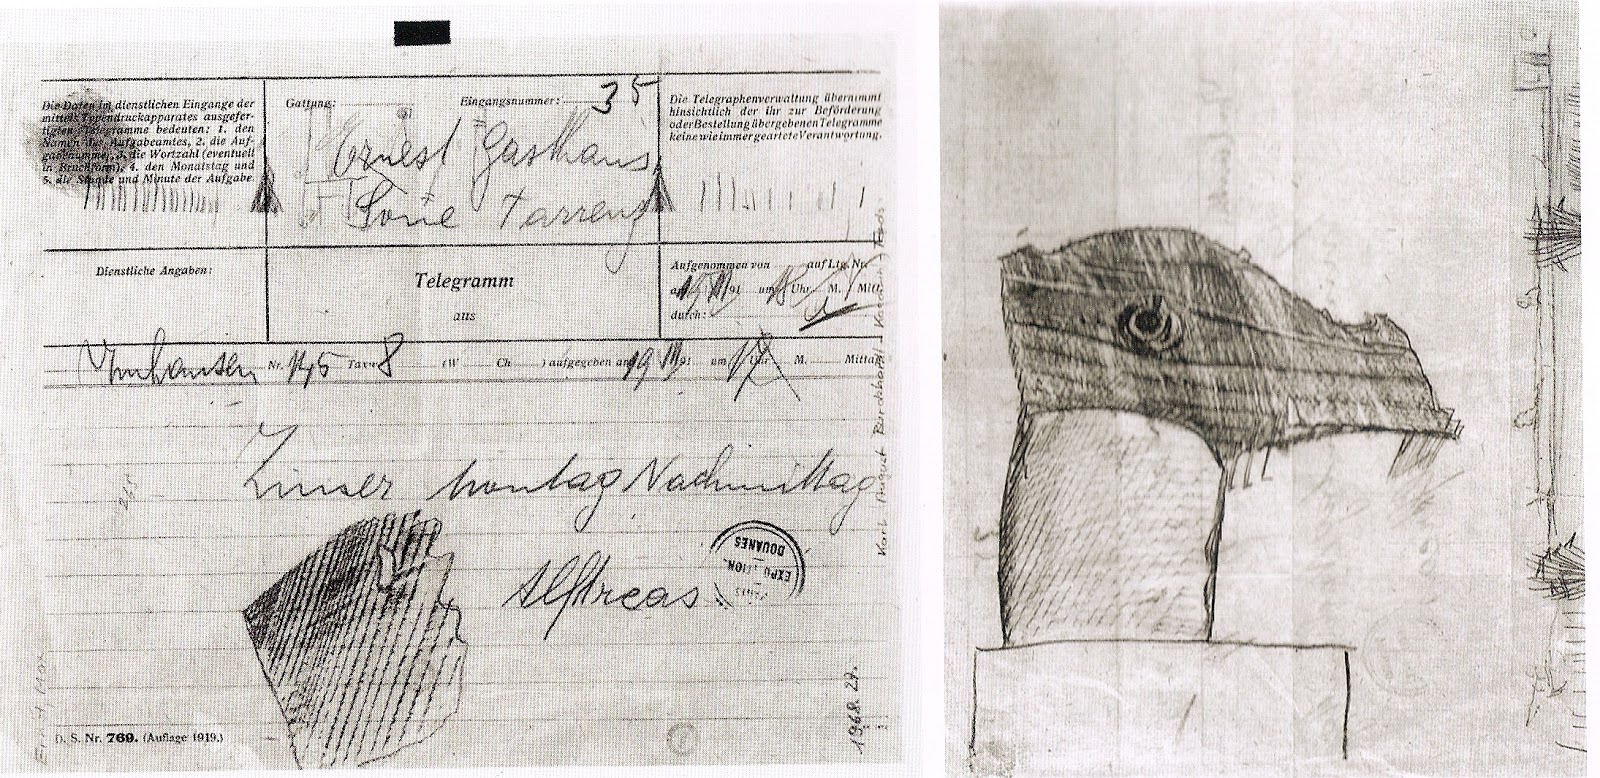 Die Daten im dienstlichen Eingange der
mittels Typendruckapparates ausgefer-
tigten Telegramme bedeuten: 1. den
Namen des Aufgabeamtes, 2. die Auf-
gabenummer, 3. die Wortzahl (eventuell
in Bruchform), 4. den Monatstag und
5. die Stunde und Minute der Aufgabe
Gattung:
Eingangsnummer: 35
Ernest Gasthaus
Die Telegraphenverwaltung übernimmt
hinsichtlich der ihr zur Beförderung
oder Bestellung übergebenen Telegramme
keine wie immer geartete Verantwortung.
Dienstliche Angaben:
Telegramm
aus
Aufgenommen von auf Ltg. Nr.
um Uhr M. Mitt.
durch:
Nr. 145 Taxe 8 (W Ch ) aufgegeben am 19 91 um 17 Uhr M. Mittag
Montag Nachmittag
EXPOSITION
DOUANES
PARIS
D. S. Nr. 769. (Auflage 1919.)
1968. 27.
Karl August